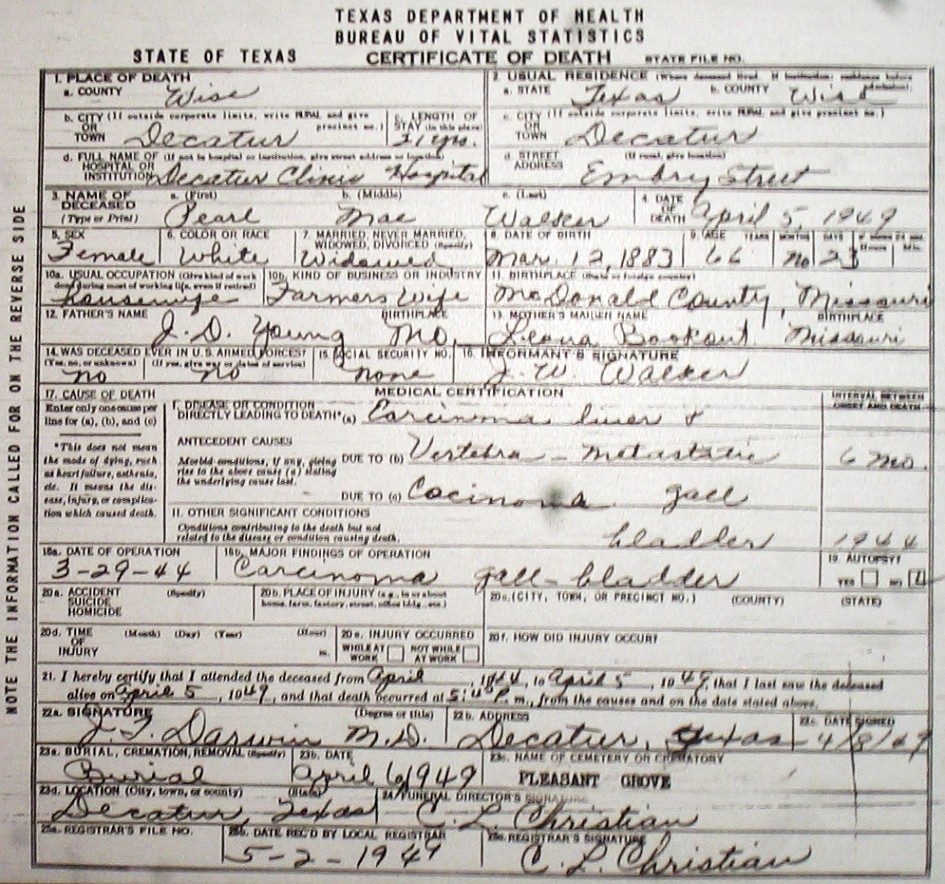 TEXAS DEPARTMENT OF HEALTH
BUREAU OF VITAL STATISTICS
STATE OF TEXAS CERTIFICATE OF DEATH STATE FILE NO.
1. PLACE OF DEATH
a. COUNTY Wise
2. USUAL RESIDENCE (Where deceased lived. If institution: residence before admission)
a. STATE Texas b. COUNTY Wise
b. CITY (If outside corporate limits, write RURAL and give precinct no.) OR TOWN Decatur
c. LENGTH OF STAY (in this place) 31 yrs.
c. CITY (If outside corporate limits, write RURAL and give precinct no.) OR TOWN Decatur
d. FULL NAME OF (If not in hospital or institution, give street address or location) HOSPITAL OR INSTITUTION Decatur Clinic Hospital
d. STREET ADDRESS (If rural, give location) Embry Street
3. NAME OF DECEASED (Type or Print) a. (First) Pearl b. (Middle) Mae c. (Last) Walker
4. DATE OF DEATH April 5, 1949
5. SEX Female
6. COLOR OR RACE White
7. MARRIED, NEVER MARRIED, WIDOWED, DIVORCED (Specify) Widowed
8. DATE OF BIRTH Mar. 12, 1883
9. AGE YEARS 66 MONTHS no DAYS 23
10a. USUAL OCCUPATION (Give kind of work done during most of working life, even if retired) housewife
10b. KIND OF BUSINESS OR INDUSTRY Farmers Wife
11. BIRTHPLACE (State or foreign country) McDonald County, Missouri
12. FATHER'S NAME J. D. Young BIRTHPLACE Mo.
13. MOTHER'S MAIDEN NAME Leona Bookout BIRTHPLACE Missouri
14. WAS DECEASED EVER IN U.S. ARMED FORCES? (Yes, no, or unknown) no (If yes, give war or dates of service) no
15 SOCIAL SECURITY NO. none
16. INFORMANT'S SIGNATURE J. W. Walker
17. CAUSE OF DEATH
Enter only one cause per line for (a), (b), and (c)
*This does not mean the mode of dying, such as heart failure, asthenia, etc. It means the disease, injury, or complication which caused death.
MEDICAL CERTIFICATION
INTERVAL BETWEEN ONSET AND DEATH
I. DISEASE OR CONDITION DIRECTLY LEADING TO DEATH* (a) Carcinoma liver &
ANTECEDENT CAUSES
Morbid conditions, if any, giving rise to the above cause (a) stating the underlying cause last.
DUE TO (b) Vertebra - metastatic 6 mo.
DUE TO (c) Cocinoma gall
II. OTHER SIGNIFICANT CONDITIONS
Conditions contributing to the death but not related to the disease or condition causing death.
bladder 1944
18a. DATE OF OPERATION 3-29-44
18b. MAJOR FINDINGS OF OPERATION Carcinoma gall-bladder
19. AUTOPSY? YES NO
20a. ACCIDENT SUICIDE HOMICIDE (Specify)
20b. PLACE OF INJURY (e.g., in or about home, farm, factory, street, office bldg., etc.)
20c. (CITY, TOWN, OR PRECINCT NO.) (COUNTY) (STATE)
20d. TIME OF INJURY (Month) (Day) (Year) (Hour) m.
20e. INJURY OCCURRED WHILE AT WORK NOT WHILE AT WORK
20f. HOW DID INJURY OCCUR?
21. I hereby certify that I attended the deceased from April, 1944, to April 5, 1949, that I last saw the deceased
alive on April 5, 1949, and that death occurred at P.m., from the causes and on the date stated above.
22a. SIGNATURE (Degree or title) J. T. Darwin M.D.
22b. ADDRESS Decatur, Texas
22c. DATE SIGNED 4/8/49
23a. BURIAL, CREMATION, REMOVAL (Specify) Burial
23b. DATE April 6, 1949
23c. NAME OF CEMETERY OR CREMATORY PLEASANT GROVE
23d. LOCATION (City, town, or county) (State) Decatur, Texas
24. FUNERAL DIRECTOR'S SIGNATURE C. L. Christian
25a. REGISTRAR'S FILE NO.
25b. DATE REC'D BY LOCAL REGISTRAR 5-2-1949
25c. REGISTRAR'S SIGNATURE C. L. Christian
NOTE THE INFORMATION CALLED FOR ON THE REVERSE SIDE